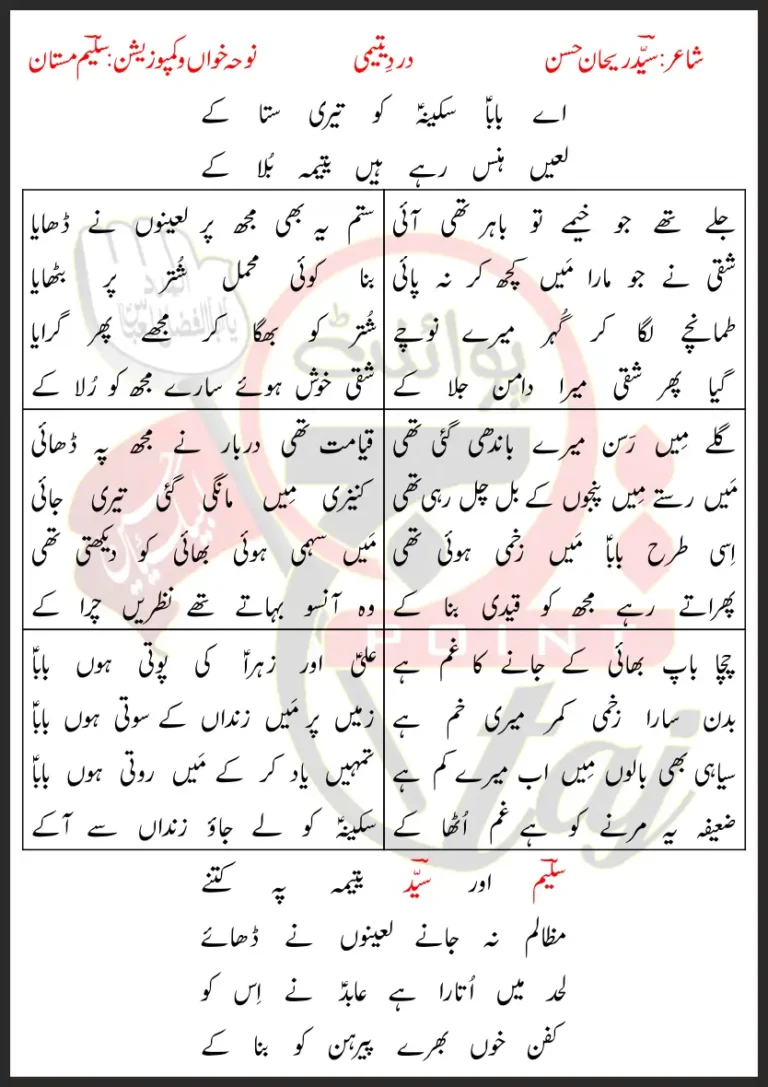 شاعر: سیّد ریحان حسن دردِ یتیمی نوحہ خواں و کمپوزیشن: سلیم مستان
اے باباؑ سکینہؑ کو تیری ستا کے
لعیں ہنس رہے ہیں یتیمہ بُلا کے
جلے تھے جو خیمے تو باہر تھی آئی
شقی نے جو مارا مَیں کچھ کر نہ پائی
طمانچے لگا کر گُہر میرے نوچے
گیا پھر شقی میرا دامن جلا کے
ستم یہ بھی مجھ پر لعینوں نے ڈھایا
بنا کوئی محمل شُتر پر بٹھایا
شُتر کو بھگا کر مجھے پھر گرایا
شقی خوش ہوئے سارے مجھ کو رُلا کے
گلے مِیں رَسن میرے باندھی گئی تھی
مَیں رستے مِیں پنجوں کے بل چل رہی تھی
اِسی طرح باباؑ مَیں زخمی ہوئی تھی
پھراتے رہے مجھ کو قیدی بنا کے
قیامت تھی دربار نے مجھ پہ ڈھائی
کنیزی مِیں مانگی گئی تیری جائی
مَیں سہمی ہوئی بھائی کو دیکھتی تھی
وہ آنسو بہاتے تھے نظریں چرا کے
چچا باپ بھائی کے جانے کا غم ہے
بدن سارا زخمی کمر میری خم ہے
سیاہی بھی بالوں مِیں اب میرے کم ہے
ضعیفہ یہ مرنے کو ہے غم اُٹھا کے
علیؑ اور زہراؑ کی پوتی ہوں باباؑ
زمیں پر مَیں زنداں کے سوتی ہوں باباؑ
تمہیں یاد کر کے مَیں روتی ہوں باباؑ
سکینہؑ کو لے جاؤ زنداں سے آ کے
سلیم اور سیّد یتیمہ پہ کتنے
مظالم نہ جانے لعینوں نے ڈھائے
لحد میں اُتارا ہے عابدؑ نے اِس کو
کفن خوں بھرے پیرہن کو بنا کے
پوائنٹ
POINT
taj